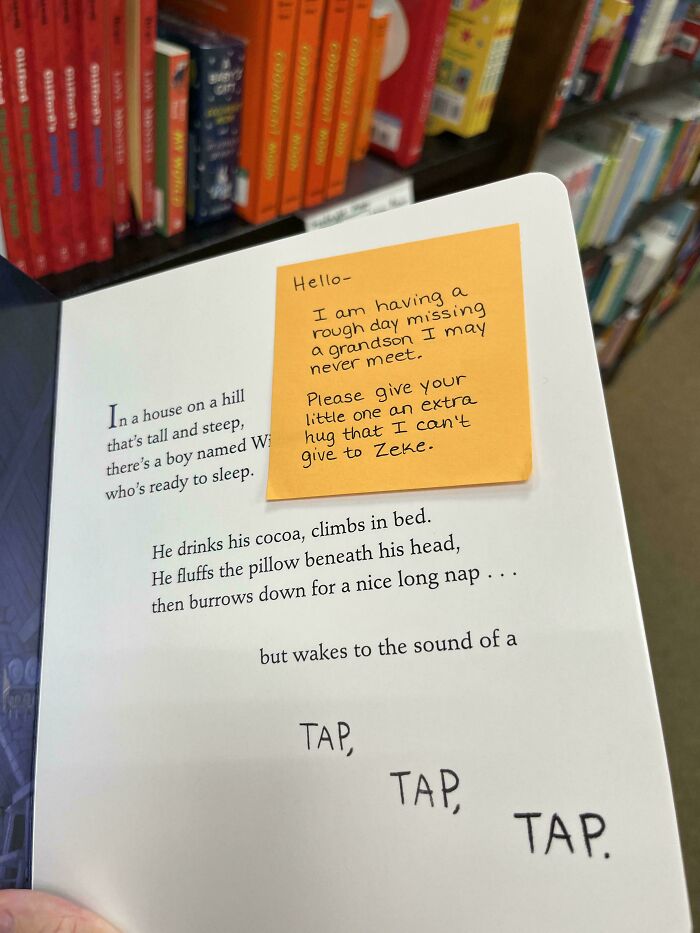 GOODNIGHT MOON
GOODNIGHT MOON
GOODNIGHT MOON
GOODNIGHT MOON
Hello-
I am having a
rough day missing
a grandson I may
never meet.
Please give your
little one an extra
hug that I can't
give to Zeke.
In a house on a hill
that's tall and steep,
there's a boy named Wi
who's ready to sleep.
He drinks his cocoa, climbs in bed.
He fluffs the pillow beneath his head,
then burrows down for a nice long nap . . .
but wakes to the sound of a
TAP,
TAP,
TAP.